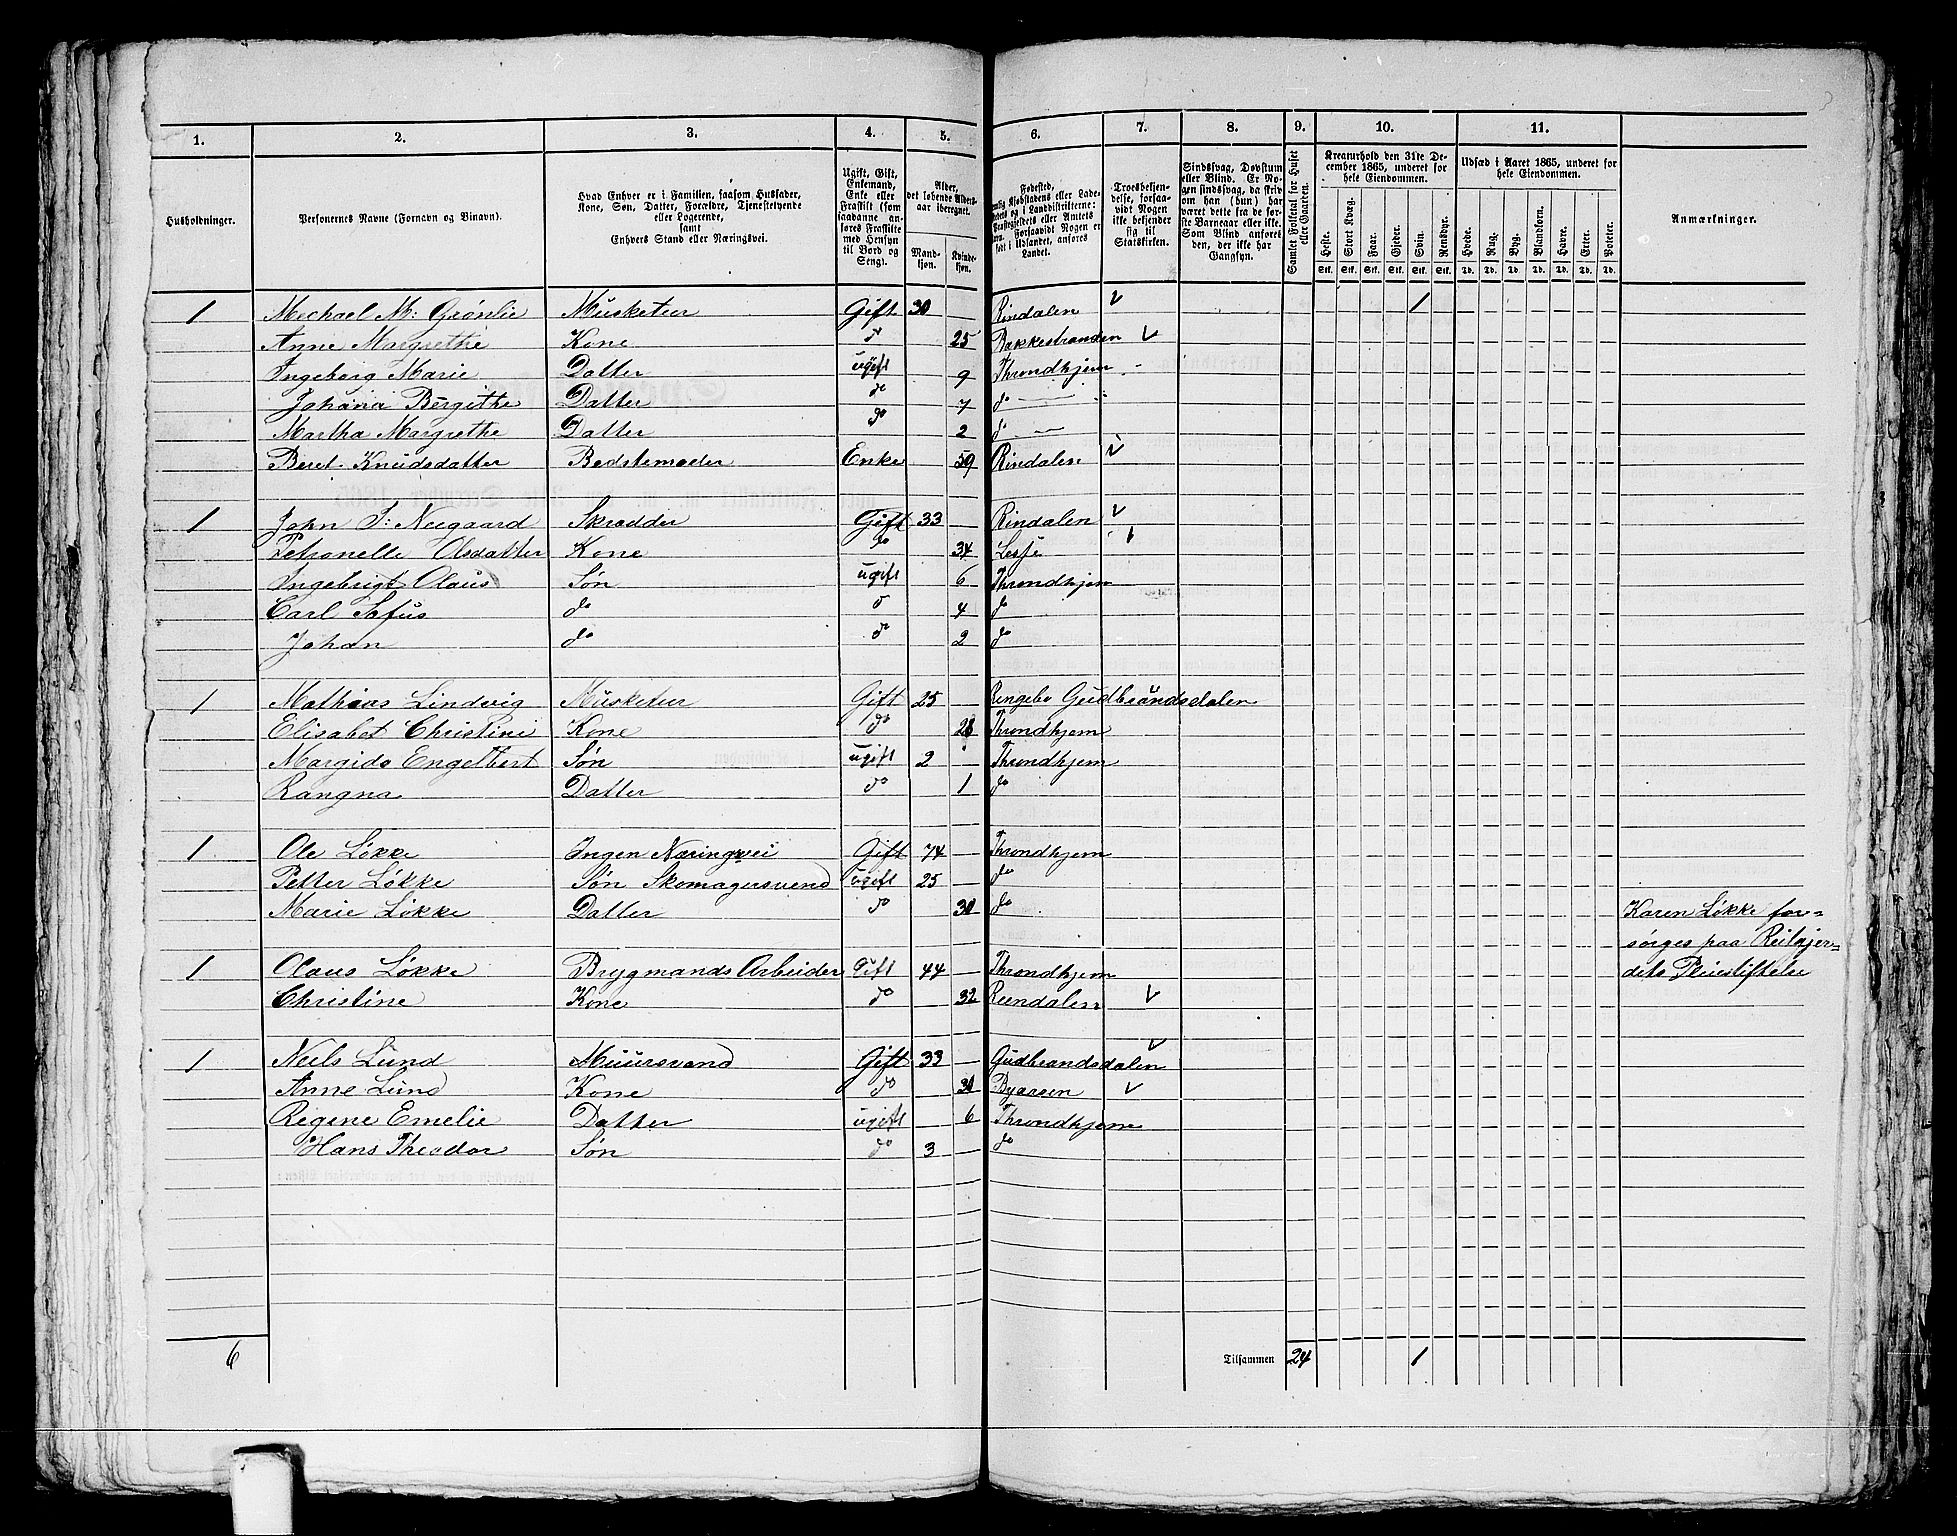 1. 2. 3. 4. 5. 6. 7. 8. 9. 10. 11.
Husholdninger.
Personernes Navne (Fornavn og Binavn).
Hvad Enhver er i Familien, saasom Husfader,
Kone, Søn, Datter, Forældre, Tjenestetyende
eller Logerende,
samt
Enhvers Stand eller Næringsvei.
Ugift, Gift,
Enkemand,
Enke eller
Fraskilt (som
saadanne an-
føres Fraskilte
med Hensyn
til Bord og
Seng).
Alder,
det løbende Alders-
aar iberegnet.
Mand-
kjøn.
Kvinde-
kjøn.
Fødested,
Kjøbstadens eller Lade-
stedets og i Landdistrikterne:
Præstegjeldets eller Amtets
Navn. Forsaavidt Nogen er
født i Udlandet, anføres
Landet.
Troesbekjen-
delse, forsaa-
vidt Nogen
ikke bekjender
sig til
Statskirken.
Sindssvag, Døvstum
eller Blind. Er No-
gen sindssvag, da skriv
om han (hun) har
været dette fra de før-
ste Barneaar eller ikke.
Som Blind anføres
den, der ikke har
Gangsyn.
Samlet Folketal for Huset
eller Gaarden.
Kreaturhold den 31te De-
cember 1865, underet for
hele Eiendommen.
Heste. Stort Kvæg. Faar. Gjeder. Svin. Rensdyr.
Stk. Stk. Stk. Stk. Stk. Stk.
Udsæd i Aaret 1865, underet for
hele Eiendommen.
Hvede. Rug. Byg. Blandkorn. Havre. Erter. Poteter.
Td. Td. Td. Td. Td. Td. Td.
Anmærkninger.
1 Mechael M: Grønlie Musketeer Gift 30 Rindalen 1
Anne Margrethe Kone do 25 Bakkestranden
Ingeborg Marie Datter ugift 9 Throndhjem
Johana Bergithe Datter do 7 do
Martha Margrethe Datter do 2 do
Beret Knudsdatter Bedstemoder Enke 59 Rindalen
1 John S: Neegaard Skrædder Gift 33 Rindalen
Petronelle Olsdatter Kone do 34 Lesje
Ingebrigt Olaus Søn ugift 6 Throndhjem
Carl Sofus do do 4 do
Johan do do 2 do
1 Mathias Lindvig Musketeer Gift 25 Ringebo Gudbrandsdalen
Elisabet Christini Kone do 28 Throndhjem
Margido Engelbert Søn ugift 2 Throndhjem
Rangna Datter do 1 do
1 Ole Løkke Ingen Næringsvei Gift 74 Throndhjem
Petter Løkke Søn Skomagersvend ugift 25 do
Marie Løkke Datter do 30 do Karen Løkke for-
sørges paa Reitgjer-
1 Olaus Løkke Brygmands Arbeider Gift 44 Throndhjem dets Pleiestiftelse
Christine Kone do 32 Reendalen
1 Neils Lund Muursvend Gift 33 Gudbrandsdalen
Anne Lund Kone do 30 Byaasen
Regine Emelie Datter ugift 6 Throndhjem
Hans Theodor Søn do 3 do
6 Tilsammen 24 1